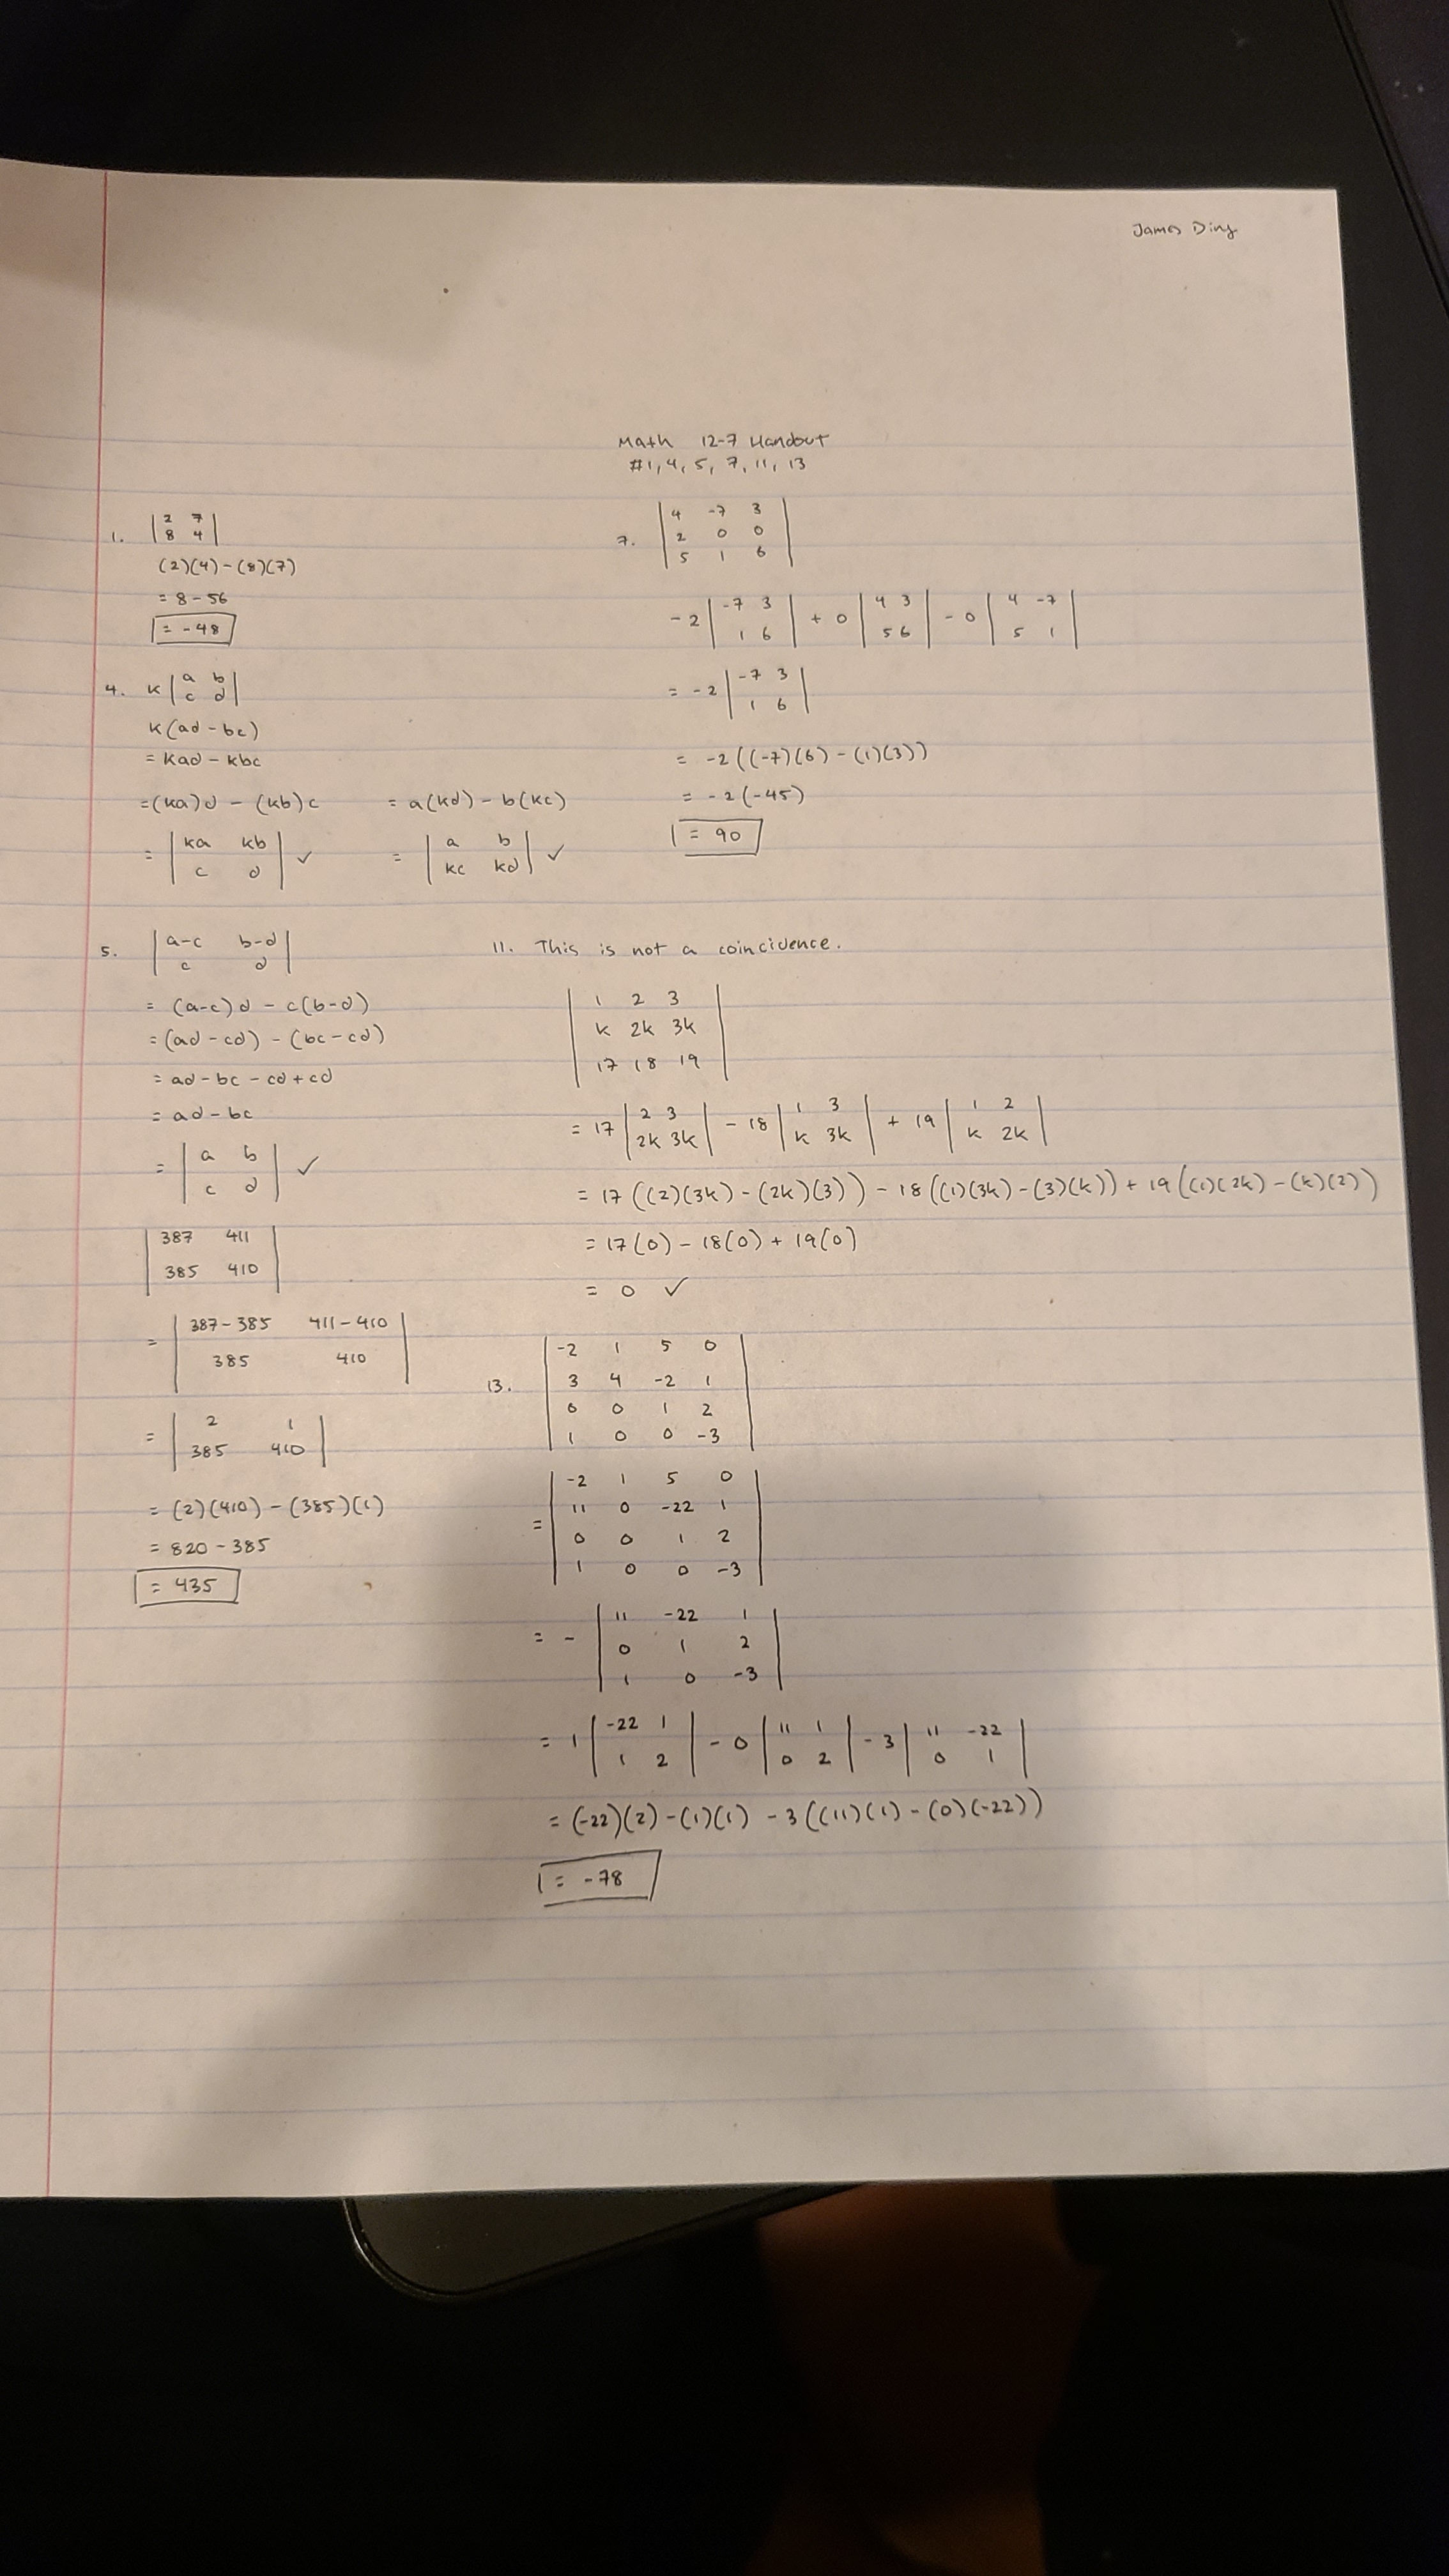 James Ding
Math 12-7 Handout
#1, 4, 5, 7, 11, 13
1. | 2 7 |
| 8 4 |
(2)(4) - (8)(7)
= 8 - 56
= -48
4. k | a b |
| c d |
k(ad - bc)
= kad - kbc
= (ka)d - (kb)c = a(kd) - b(kc)
= | ka kb | ✓ = | a b | ✓
| c d | | kc kd |
5. | a-c b-d |
| c d |
= (a-c)d - c(b-d)
= (ad - cd) - (bc - cd)
= ad - bc - cd + cd
= ad - bc
= | a b | ✓
| c d |
| 387 411 |
| 385 410 |
= | 387-385 411-410 |
| 385 410 |
= | 2 1 |
| 385 410 |
= (2)(410) - (385)(1)
= 820 - 385
= 435
7. | 4 -7 3 |
| 2 0 0 |
| 5 1 6 |
-2 | -7 3 | + 0 | 4 3 | - 0 | 4 -7 |
| 1 6 | | 5 6 | | 5 1 |
= -2 | -7 3 |
| 1 6 |
= -2((-7)(6) - (1)(3))
= -2(-45)
= 90
11. This is not a coincidence.
| 1 2 3 |
| k 2k 3k |
| 17 18 19 |
= 17 | 2 3 | - 18 | 1 3 | + 19 | 1 2 |
| 2k 3k | | k 3k | | k 2k |
= 17((2)(3k) - (2k)(3)) - 18((1)(3k) - (3)(k)) + 19((1)(2k) - (k)(2))
= 17(0) - 18(0) + 19(0)
= 0 ✓
13. | -2 1 5 0 |
| 3 4 -2 1 |
| 0 0 1 2 |
| 1 0 0 -3 |
= | -2 1 5 0 |
| 11 0 -22 1 |
| 0 0 1 2 |
| 1 0 0 -3 |
= - | 11 -22 1 |
| 0 1 2 |
| 1 0 -3 |
= 1 | -22 1 | - 0 | 11 1 | - 3 | 11 -22 |
| 1 2 | | 0 2 | | 0 1 |
= (-22)(2) - (1)(1) - 3((11)(1) - (0)(-22))
= -78